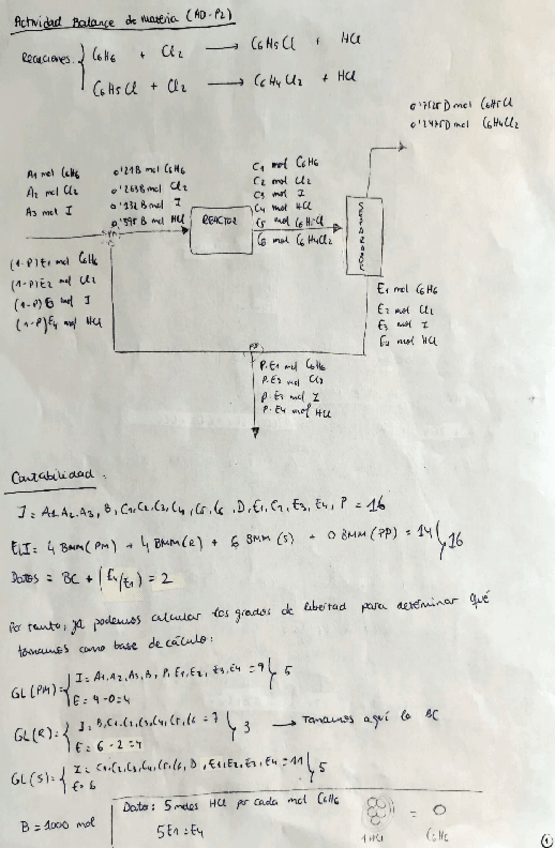 Actividad Balance de materia (AD-P2)
Reacciones: C6H6 + Cl2 → C6H5Cl + HCl
C6H5Cl + Cl2 → C6H4Cl2 + HCl
0'7525 D mol C6H5Cl
0'2475 D mol C6H4Cl2
A1 mol C6H6
A2 mol Cl2
A3 mol I
0'21 B mol C6H6
0'263 B mol Cl2
0'132 B mol I
0'395 B mol HCl
REACTOR
C1 mol C6H6
C2 mol Cl2
C3 mol I
C4 mol HCl
C5 mol C6H5Cl
C6 mol C6H4Cl2
(1-P)E1 mol C6H6
(1-P)E2 mol Cl2
(1-P)E3 mol I
(1-P)E4 mol HCl
E1 mol C6H6
E2 mol Cl2
E3 mol I
E4 mol HCl
P.E1 mol C6H6
P.E2 mol Cl2
P.E3 mol I
P.E4 mol HCl
Contabilidad:
I = A1, A2, A3, B, C1, C2, C3, C4, C5, C6, D, E1, E2, E3, E4, P = 16
EI = 4 BMM(PM) + 4 BMM(R) + 6 BMM(S) + 0 BMM(PP) = 14 } 16
Datos = BC + (E4/E1) = 2
Por tanto, ya podemos calcular los grados de libertad para determinar qué
tomamos como base de cálculo:
GL(PM) = { I = A1, A2, A3, B, P, E1, E2, E3, E4 = 9 } 5
E = 4-0 = 4
GL(R) = { I = B, C1, C2, C3, C4, C5, C6 = 7 } 3 → Tomamos aquí la BC
E = 6-2 = 4
GL(S) = { I = C1, C2, C3, C4, C5, C6, D, E1, E2, E3, E4 = 11 } 5
E = 6
B = 1000 mol
Dato: 5 moles HCl por cada mol C6H6
5E1 = E4
1 HCl = C6H6
1